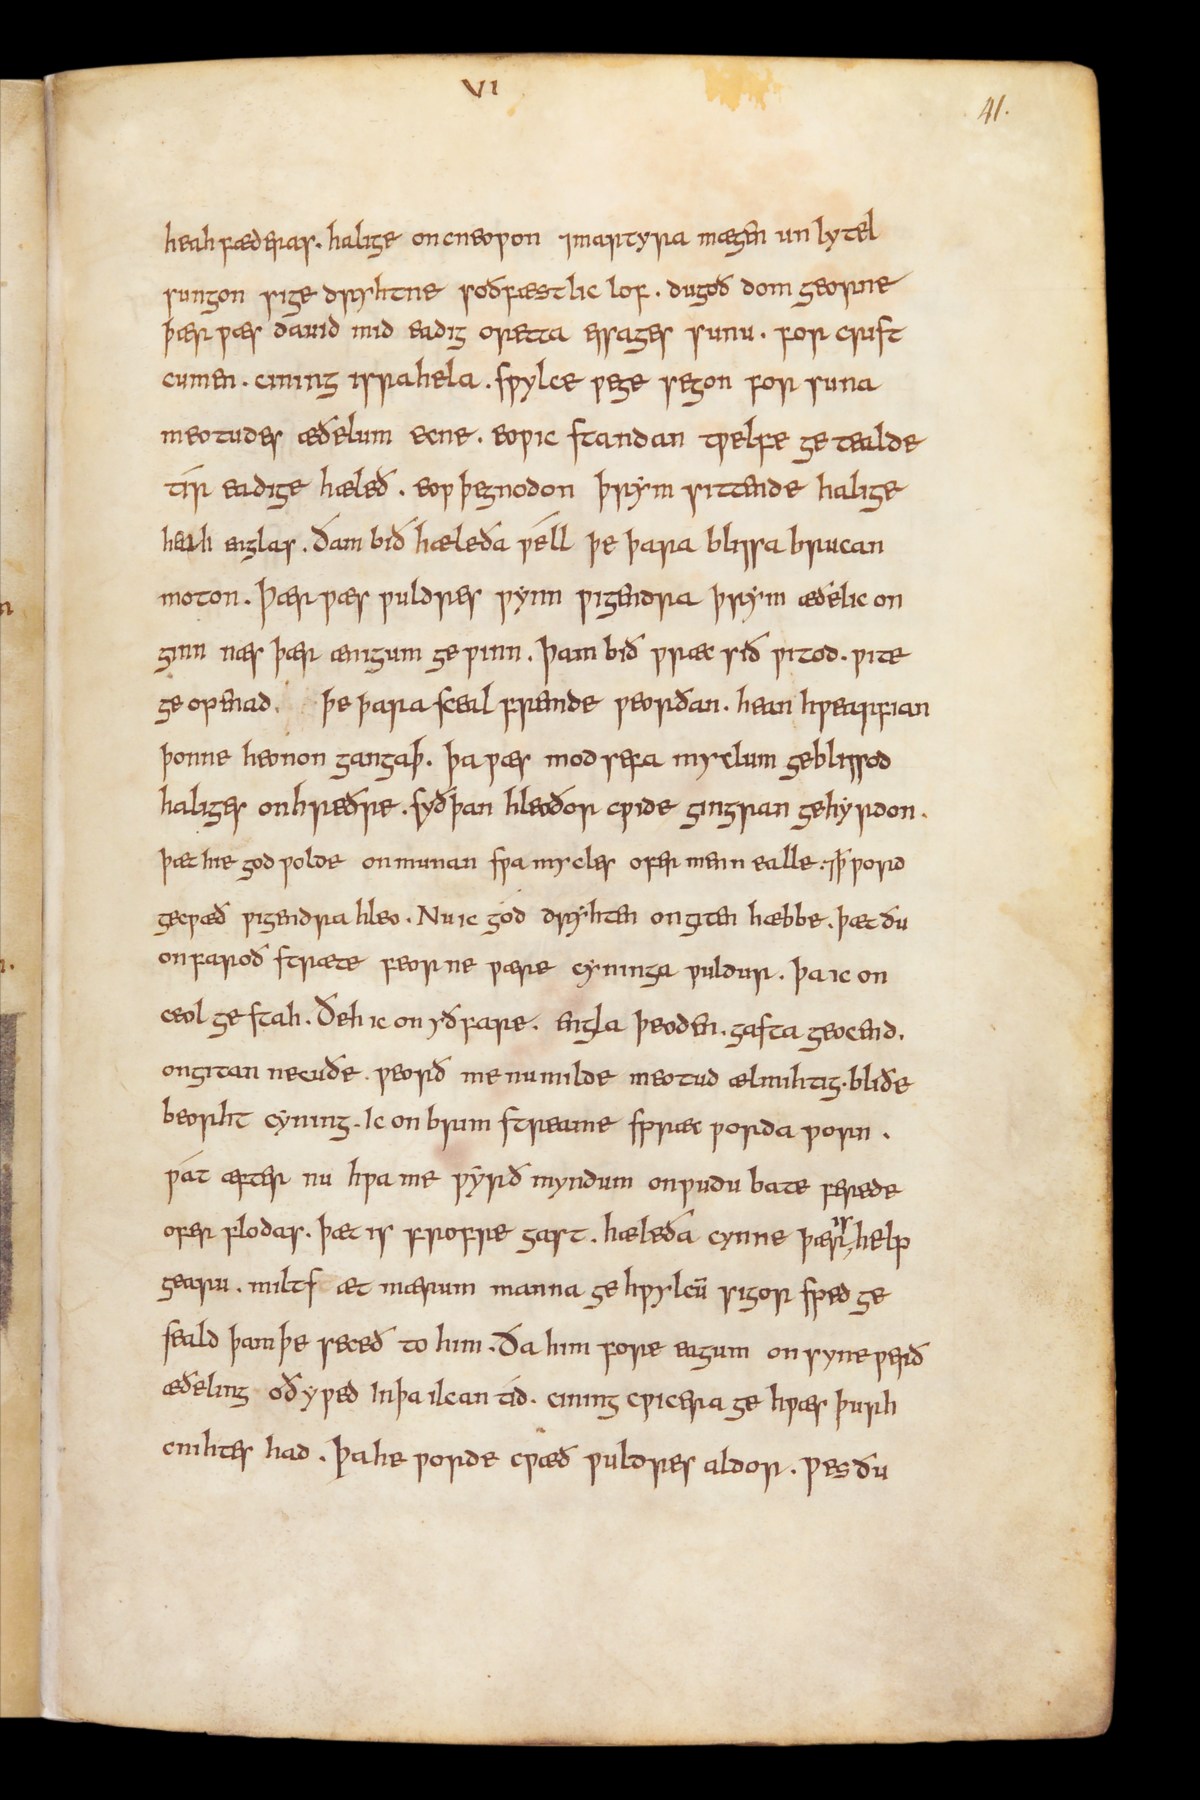 VI
41.
heahfæderas. halige oncneowon ⁊martyra mægen un lytel
sungon sige dryhtne soðfæstlic lof. dugoð dom georne
þær wæs dauid mid eadig oretta essages sunu. for crist
cumen. cining israhela. swylce wege segon for suna
meotudes æðelum ecne. eowic standan twelfe ge tealde
tír eadige hæleð. eow þegnodon þrym sittende halige
heah englas. ðam bið hæleða wéll þe þara blissa brucan
moton. þær wæs wuldres wynn wigendra þrym æðelic on
ginn næs þær ænigum ge winn. þam bið wræc sið witod. wite
ge openad. þe þara sceal fremde weorðan. hean hwearfian
þonne heonon gangaþ. þa wæs mod sefa myclum geblissod
haliges onhreðre. syðþan hleoðor cwide gingran gehyrdon.
þæt hie god wolde onmunan swa mycles ofer menn ealle. ⁊ꝥ word
gecwæð wigendra hleo. Nu ic god dryhten ongiten hæbbe. þæt ðu
on faroð stræte feor ne wære cyninga wuldur. þa ic on
ceol gestah. Ðeh ic on yð fare. engla þeoden. gasta geocend.
ongitan necuðe. weorð me nu milde meotud ælmihtig. bliðe
beorht cyning. Ic on brim streame spræc worda worn.
wát æfter nu hwa me wyrð myndum on wudu bate ferede
ofer flodas. þæt is frofre gast. hæleða cynne þær is help
gearu. milts æt mærum manna ge hwylcū sigor sped ge
seald þam þe seceð to him. Ða him fore eagum on syne werð
æðeling oðywed In þa ilcan tid. cining cwicera ge hwæs þurh
cnihtes had. þa he worde cwæð wuldres aldor. Wes ðu